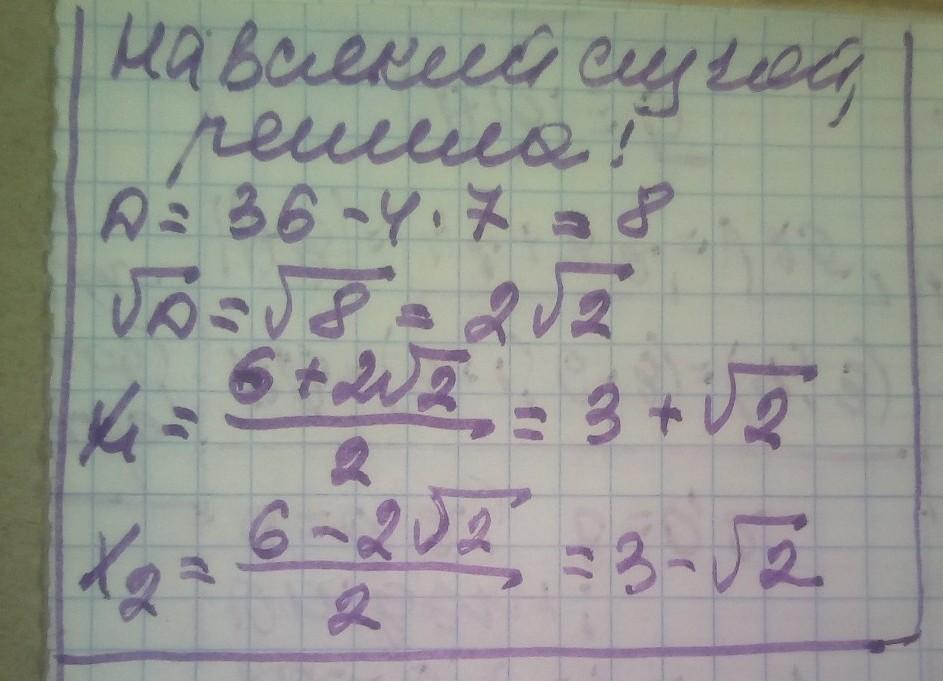 на всякий случай,
решила!
D = 36 - 4 · 7 = 8
√D = √8 = 2√2
x₁ = (6 + 2√2)/2 = 3 + √2
x₂ = (6 - 2√2)/2 = 3 - √2